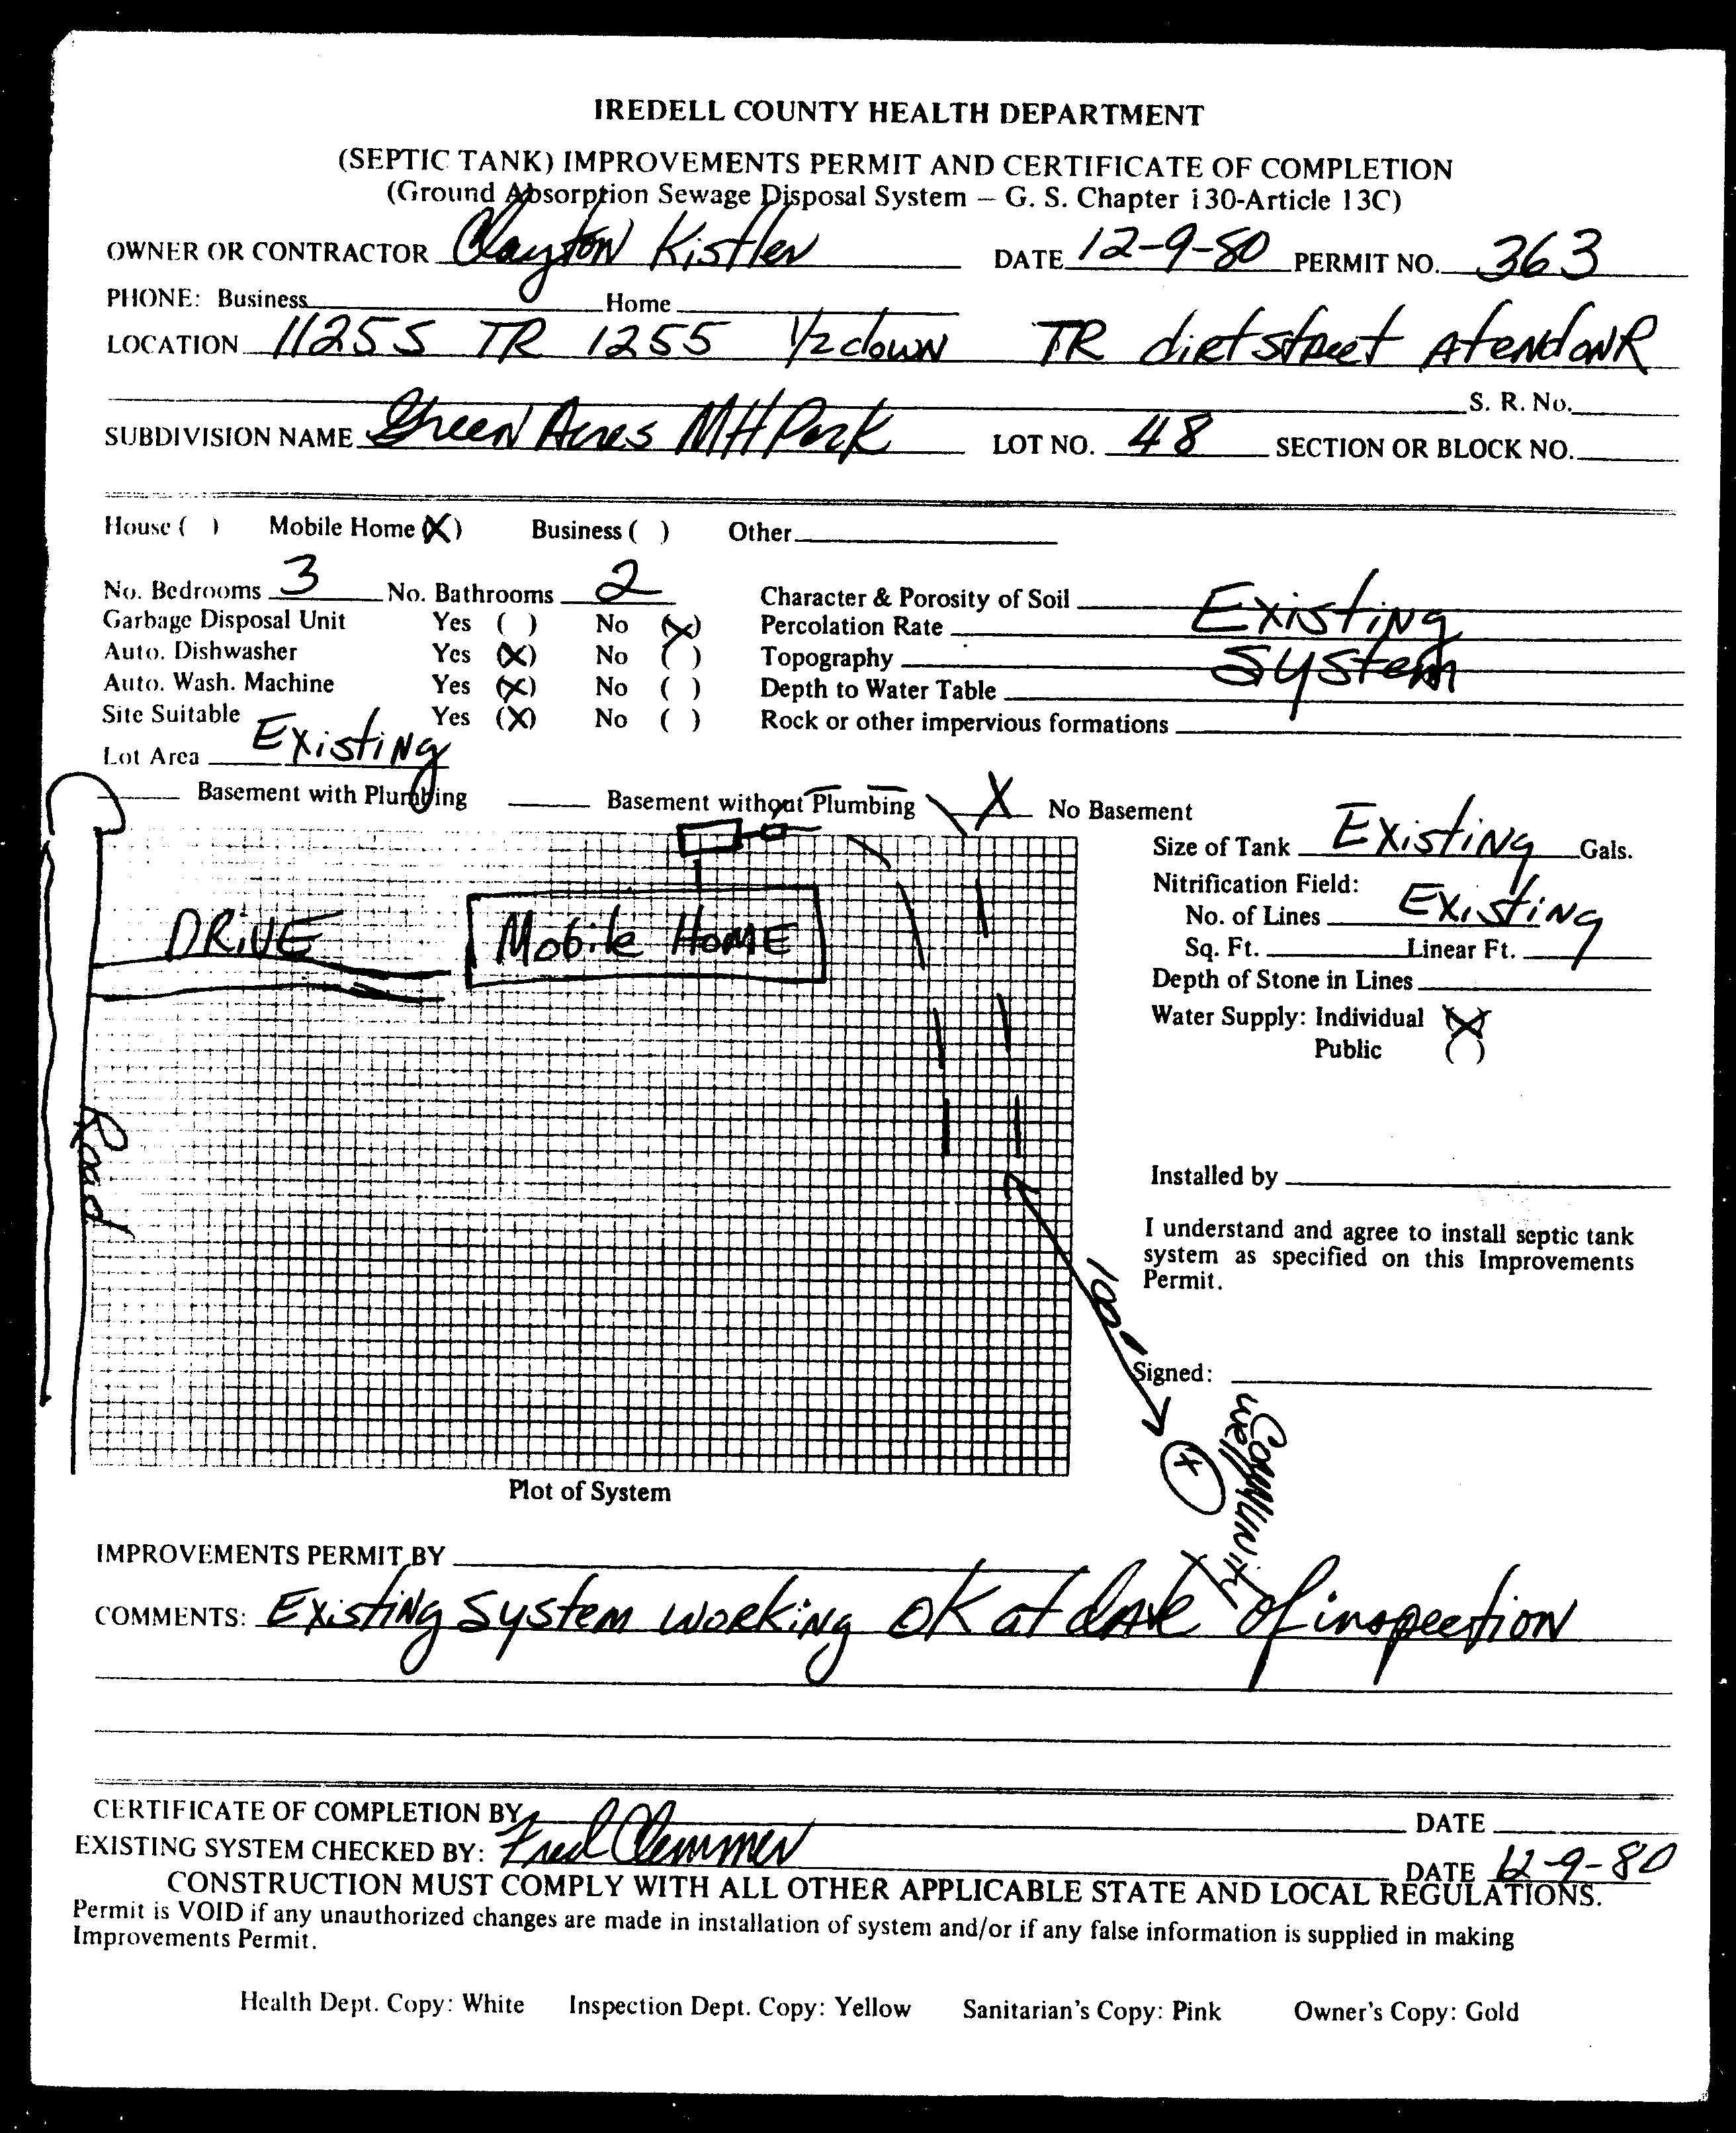 IREDELL COUNTY HEALTH DEPARTMENT
(SEPTIC TANK) IMPROVEMENTS PERMIT AND CERTIFICATE OF COMPLETION
(Ground Absorption Sewage Disposal System – G. S. Chapter 130-Article 13C)
OWNER OR CONTRACTOR Clayton Kistler DATE 12-9-80 PERMIT NO. 363
PHONE: Business Home
LOCATION 1125S TR 1255 1/2 down TR dirt street At end on R
S. R. No.
SUBDIVISION NAME Green Acres MH Park LOT NO. 48 SECTION OR BLOCK NO.
House ( ) Mobile Home (X) Business ( ) Other
No. Bedrooms 3 No. Bathrooms 2 Character & Porosity of Soil Existing
Garbage Disposal Unit Yes ( ) No (X) Percolation Rate
Auto. Dishwasher Yes (X) No ( ) Topography System
Auto. Wash. Machine Yes (X) No ( ) Depth to Water Table
Site Suitable Yes (X) No ( ) Rock or other impervious formations
Lot Area Existing
Basement with Plumbing Basement without Plumbing X No Basement
Size of Tank Existing Gals.
Nitrification Field:
No. of Lines Existing
Sq. Ft. Linear Ft.
Depth of Stone in Lines
Water Supply: Individual (X)
Public ( )
DRIVE
Mobile HOME
Road
100'
Installed by
I understand and agree to install septic tank
system as specified on this Improvements
Permit.
Signed:
X
Community
well
Plot of System
IMPROVEMENTS PERMIT BY
COMMENTS: Existing System working OK at date of inspection
CERTIFICATE OF COMPLETION BY DATE
EXISTING SYSTEM CHECKED BY: Fred Clemmer DATE 12-9-80
CONSTRUCTION MUST COMPLY WITH ALL OTHER APPLICABLE STATE AND LOCAL REGULATIONS.
Permit is VOID if any unauthorized changes are made in installation of system and/or if any false information is supplied in making
Improvements Permit.
Health Dept. Copy: White Inspection Dept. Copy: Yellow Sanitarian's Copy: Pink Owner's Copy: Gold